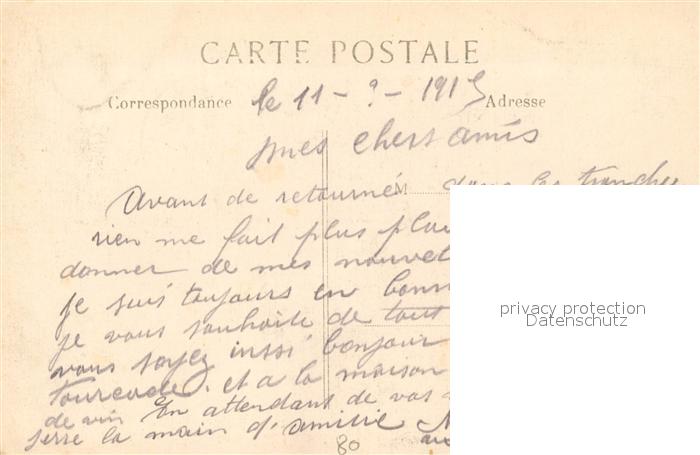 CARTE POSTALE
Correspondance
Adresse
le 11 - ? - 1915
mes chers amis
Avant de retourné dans les tranchée
M
rien me fait plus
donner de mes nouvel
je suis toujours en bonn
je vous souhaite de tout
vous soyez inssi bonjour
et a la maison
de vin En attendant de vos
serre la main d'amitié
80
privacy protection
Datenschutz